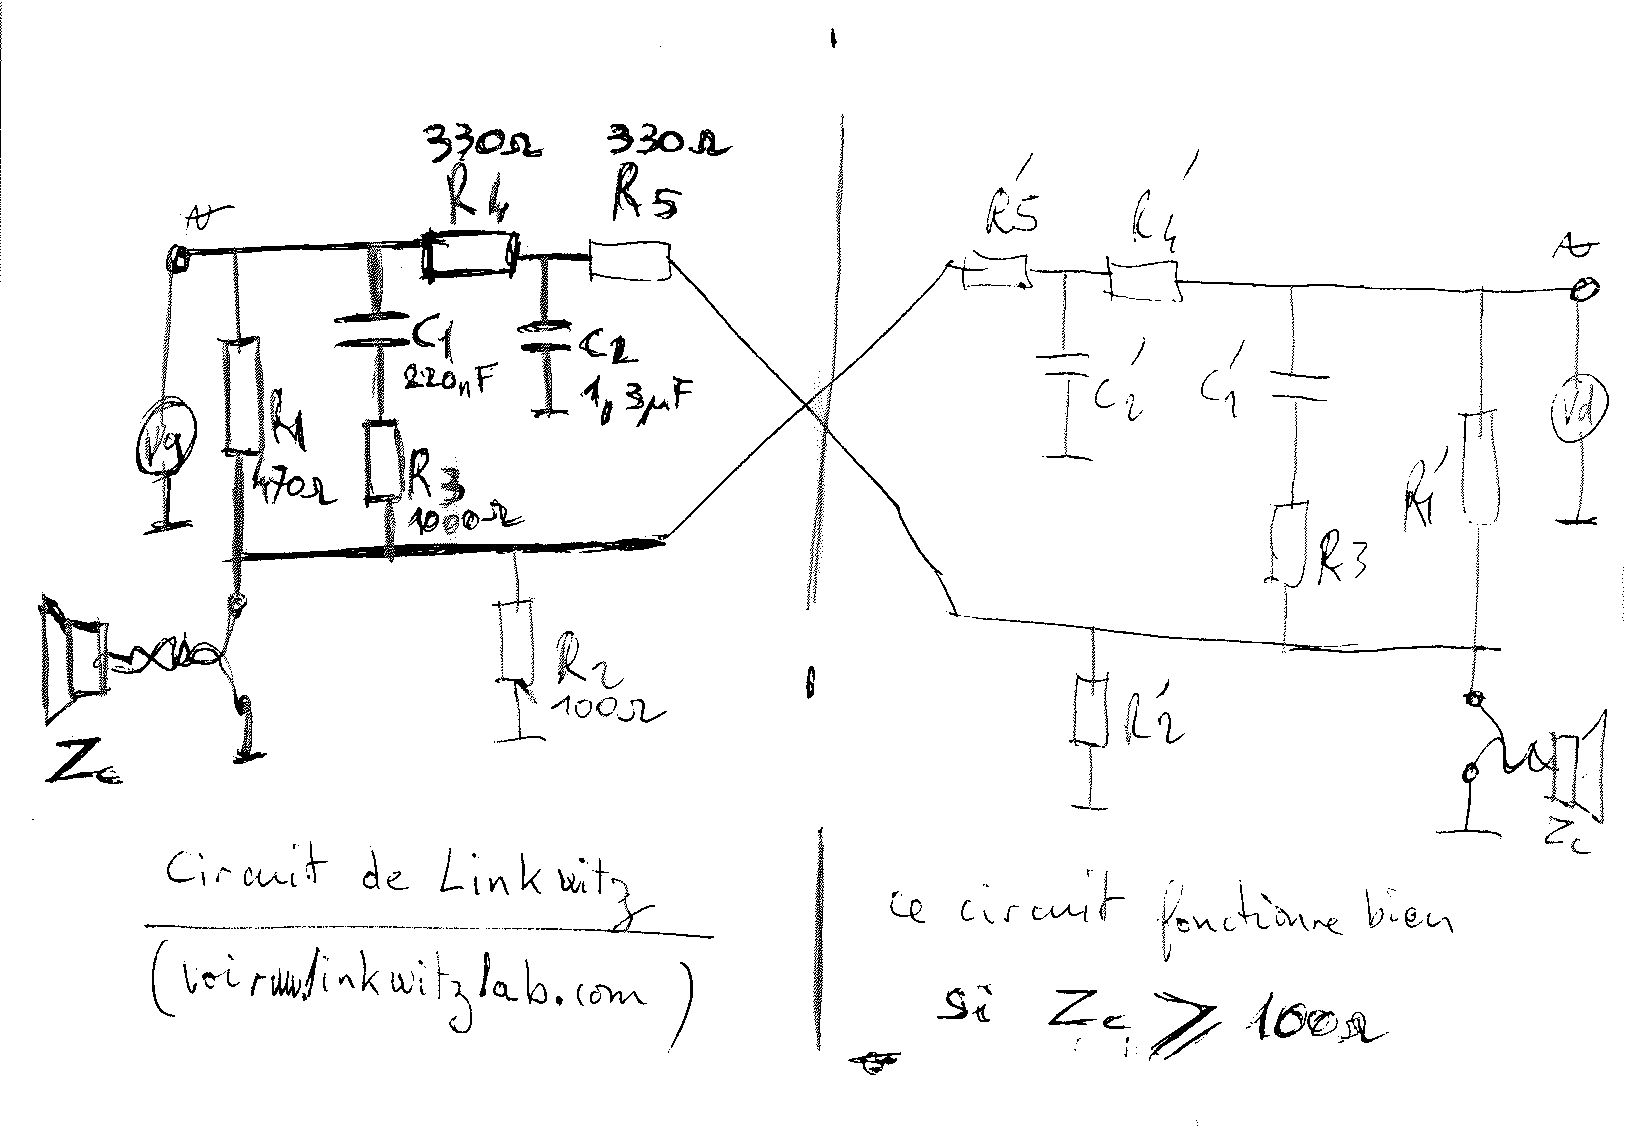 330Ω 330Ω
R4 R5
R'5 R'4
C1
220nF
C2
1,3µF
Vg
R1
470Ω
R3
1000Ω
C'2
C'1
R'1
Vd
R3
R2
100Ω
R'2
Zc
Zc
Circuit de Linkwitz
(voir www.linkwitzlab.com)
ce circuit fonctionne bien
si Zc ⩾ 100Ω